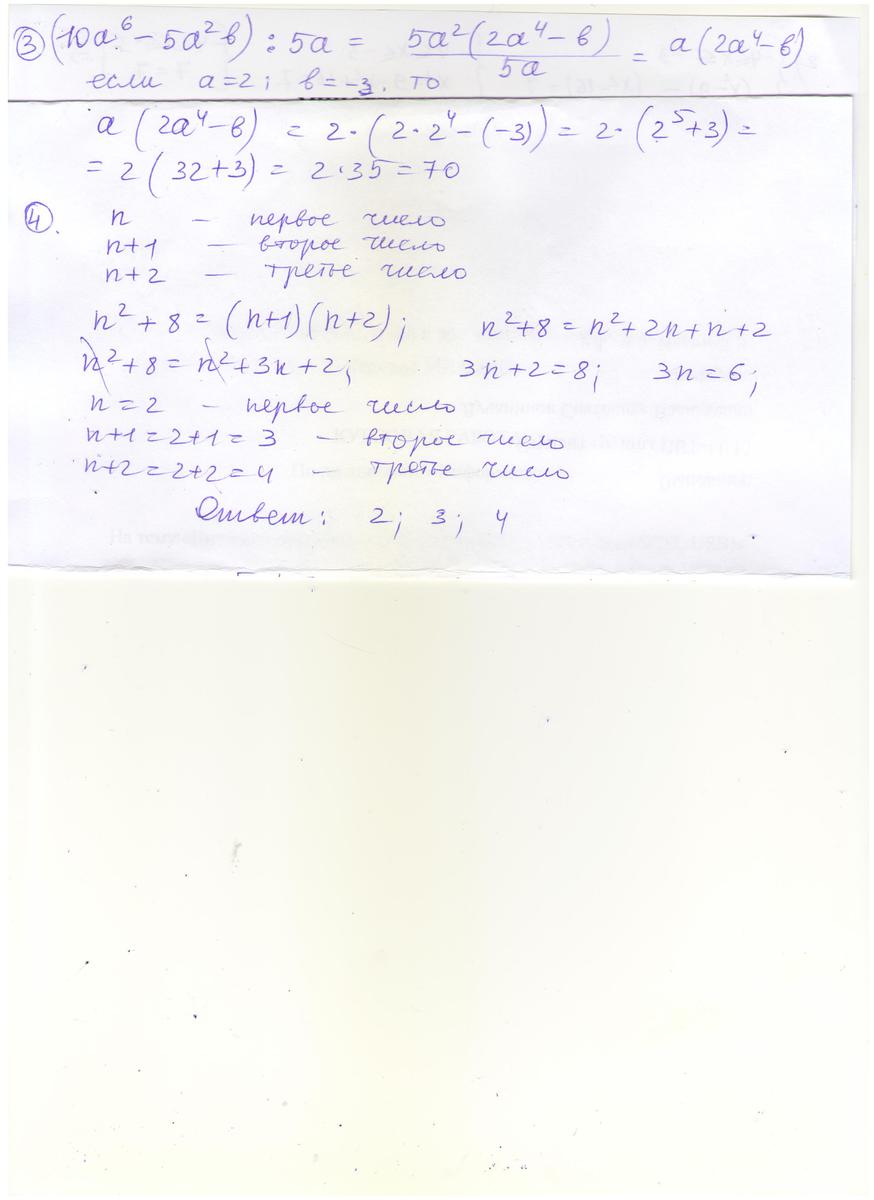 ③ (10a⁶ − 5a²в) : 5a = 5a²(2a⁴ − в) / 5a = a(2a⁴ − в)
если a = 2; в = −3. то
a (2a⁴ − в) = 2·(2·2⁴ − (−3)) = 2·(2⁵ + 3) =
= 2 (32 + 3) = 2·35 = 70
④. n — первое число
n + 1 — второе число
n + 2 — третье число
n² + 8 = (n+1)(n+2); n² + 8 = n² + 2n + n + 2
n² + 8 = n² + 3n + 2; 3n + 2 = 8; 3n = 6;
n = 2 – первое число
n+1 = 2+1 = 3 – второе число
n+2 = 2+2 = 4 третье число
Ответ: 2; 3; 4